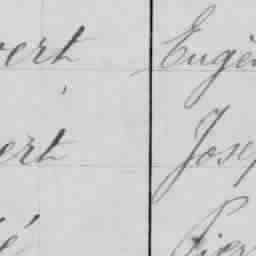 vert Eugèn
ert Josep
é Pier